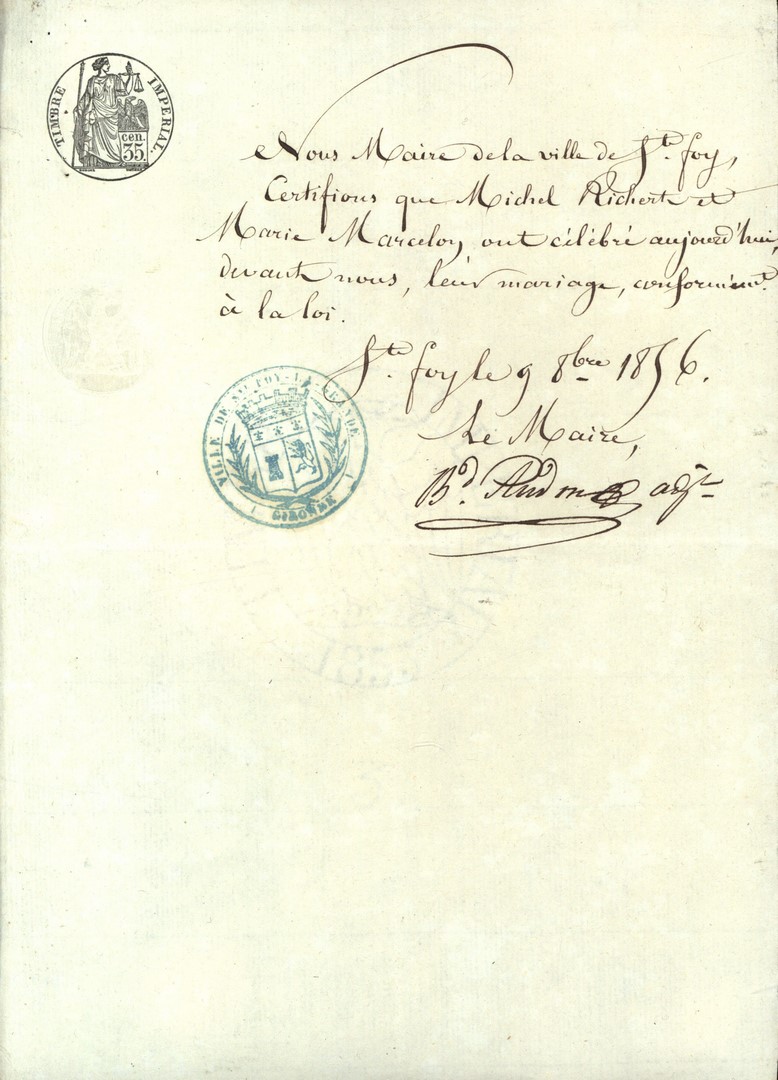 TIMBRE IMPERIAL.
cen.
35.
Nous Maire de la ville de Ste. foy,
Certifions que Michel Richert et
Marie Marceloy ont célébré aujourd'hui,
devant nous, leur mariage, conformémt.
à la loi.
Ste. foy le 9 8bre 1856.
VILLE DE STE FOY-LA-GRANDE
GIRONDE
Le Maire,
Bd. adjt